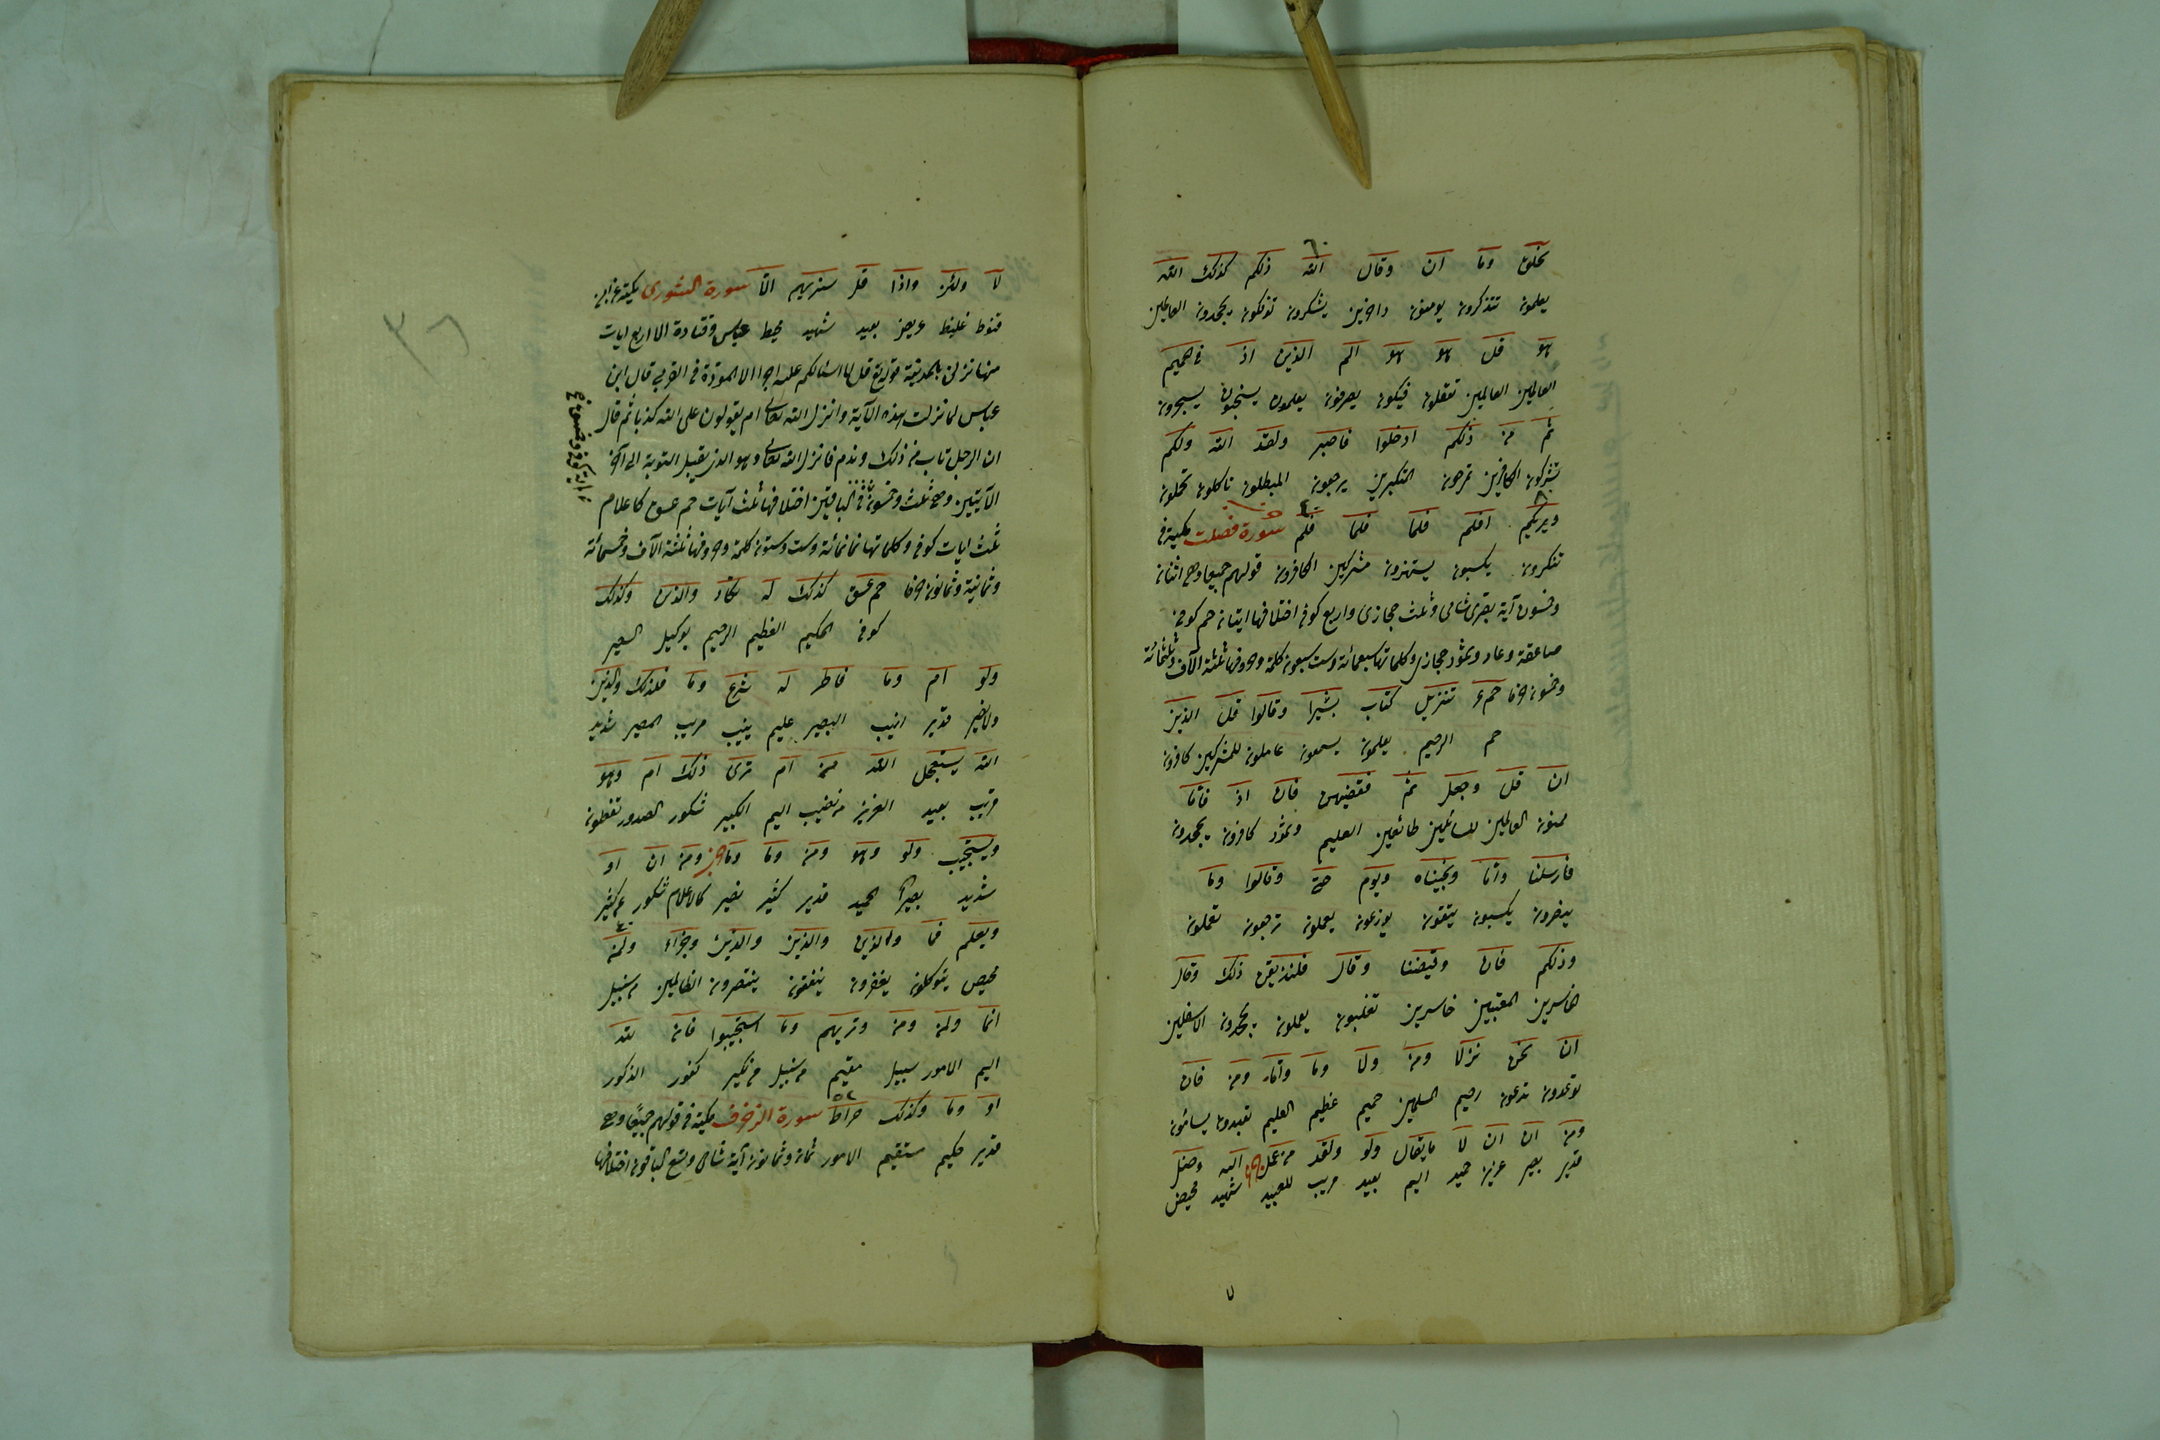 ٦٠
لخلق وما ان وقال الله ذلكم كذلك الله
يعلمون تتذكرون يؤمنون داخرين يشكرون تؤفكون يجحدون العالمين
هو قل هو هو الم الذين اذ في الحميم
العالمين العالمين تعقلون فيكون يصرفون يعلمون يسحبون يسجرون
ثم من ذلكم ادخلوا فاصبر ولقد الله ولكم
تشركون الكافرين تمرحون المتكبرين يرجعون المبطلون تاكلون تحملون
ويريكم افلم فلما فلما فلم سورة فصلت مكية في
تنكرون يكسبون يستهزون مشركين الكافرون قولهم جميعا وهي اثنتان
وخمسون آية بصرى شامى وثلث حجازى واربع كوفى اختلافها ايتان حم كوفى
صاعقة عاد وثمود حجازى وكلماتها سبعمائة وست وسبعون كلمة وحروفها ثلثة الآف وثلثمائة
وخمسون حرفا حم تنزيل كتاب بشيرا وقالوا قل الذين
حم الرحيم يعلمون يسمعون عاملون للمشركين كافرون
ان قل وجعل ثم فقضيهن فان اذ فاما
ممنون العالمين للسائلين طائعين العليم وثمود كافرون يجحدون
فارسلنا واما ونجيناه ويوم حتى وقالوا وما
ينصرون يكسبون يتقون يوزعون يعملون ترجعون تعملون
وذلكم فان وقيضنا وقال فلنذيقن ذلك وقال
الخاسرين المعتبين خاسرين تغلبون يعملون يجحدون الاسفلين
ان نحن نزلا ومن ولا وما واما ومن فان
توعدون تدعون رحيم المسلمين حميم عظيم العليم تعبدون يسأمون
ومن ان ان لا ما يقال ولو ولقد من عمل اليه وضل
قدير بصير عزيز حميد اليم بعيد مريب للعبيد شهيد محيص
٧
٣٦
لا ولئن واذا قل سنريهم الا سورة الشورى مكية عن ابن
قنوط غليظ عريض بعيد شهيد محيط عباس وقتادة الا اربع ايات
منها نزلن بالمدينة قوله تع قل لا اسألكم عليه اجرا الا المودة في القربى قال ابن
عباس لما نزلت هذه الآية وانزل الله تعالى ام يقولون على الله كذبا ثم قال
ان الرجل تاب من ذلك وندم فانزل الله تعالى وهو الذى يقبل التوبة الى آخر
الآيتين وهي ثلث وخمسون في الباقين اختلافها ثلث آيات حم عسق كالاعلام
ثلث ايات كوفى وكلماتها ثمانمائة وست وستون كلمة وحروفها ثلثة الآف وخمسمائة
وثمانية وثمانون حرفا حم عسق كذلك له تكاد والذين وكذلك
كوفى الحكيم العظيم الرحيم بوكيل السعير
ولو ام وما فاطر له شرع وما فلذلك والذين
ولا نصير قدير انيب البصير عليم ينيب مريب المصير شديد
الله يستعجل الله من ام ترى ذلك ام وهو
قريب بعيد العزيز من نصيب اليم الكبير شكور الصدور تفعلون
ويستجيب ولو وهو ومن وما وما ومن ان او
شديد بصير الحميد قدير كثير نصير كالاعلام شكور عن كثير
ويعلم فما والذين والذين والذين وجزاء ولمن
محيص يتوكلون يغفرون ينفقون ينتصرون الظالمين من سبيل
انما ولمن ومن وتريهم وما استجيبوا فان لله
اليم الامور سبيل مقيم من سبيل من نكير كفور الذكور
او وما وكذلك صراط سورة الزخرف مكية في قولهم جميعا وهي
قدير حكيم مستقيم الامور ثمان وثمانون آية شامى وتسع الباقون اختلافها